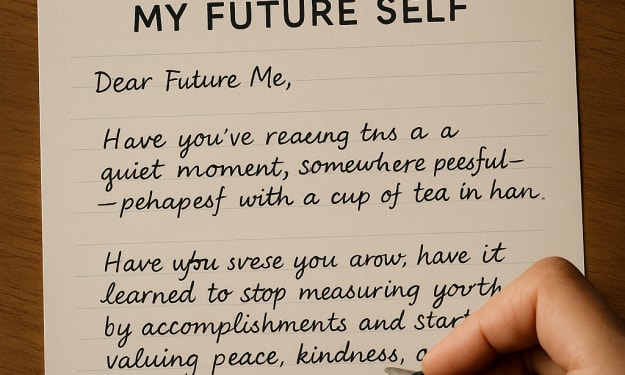 MY FUTURE SELF
Dear Future Me,
Have you've reaeung tns a a
quiet moment, somewhere peesful–
—pehapesf with a cup of tea in han.
Have you svese you arow, have it
learned to stop measuring yorth
by accomplishments and start
valuing peace, kindness,